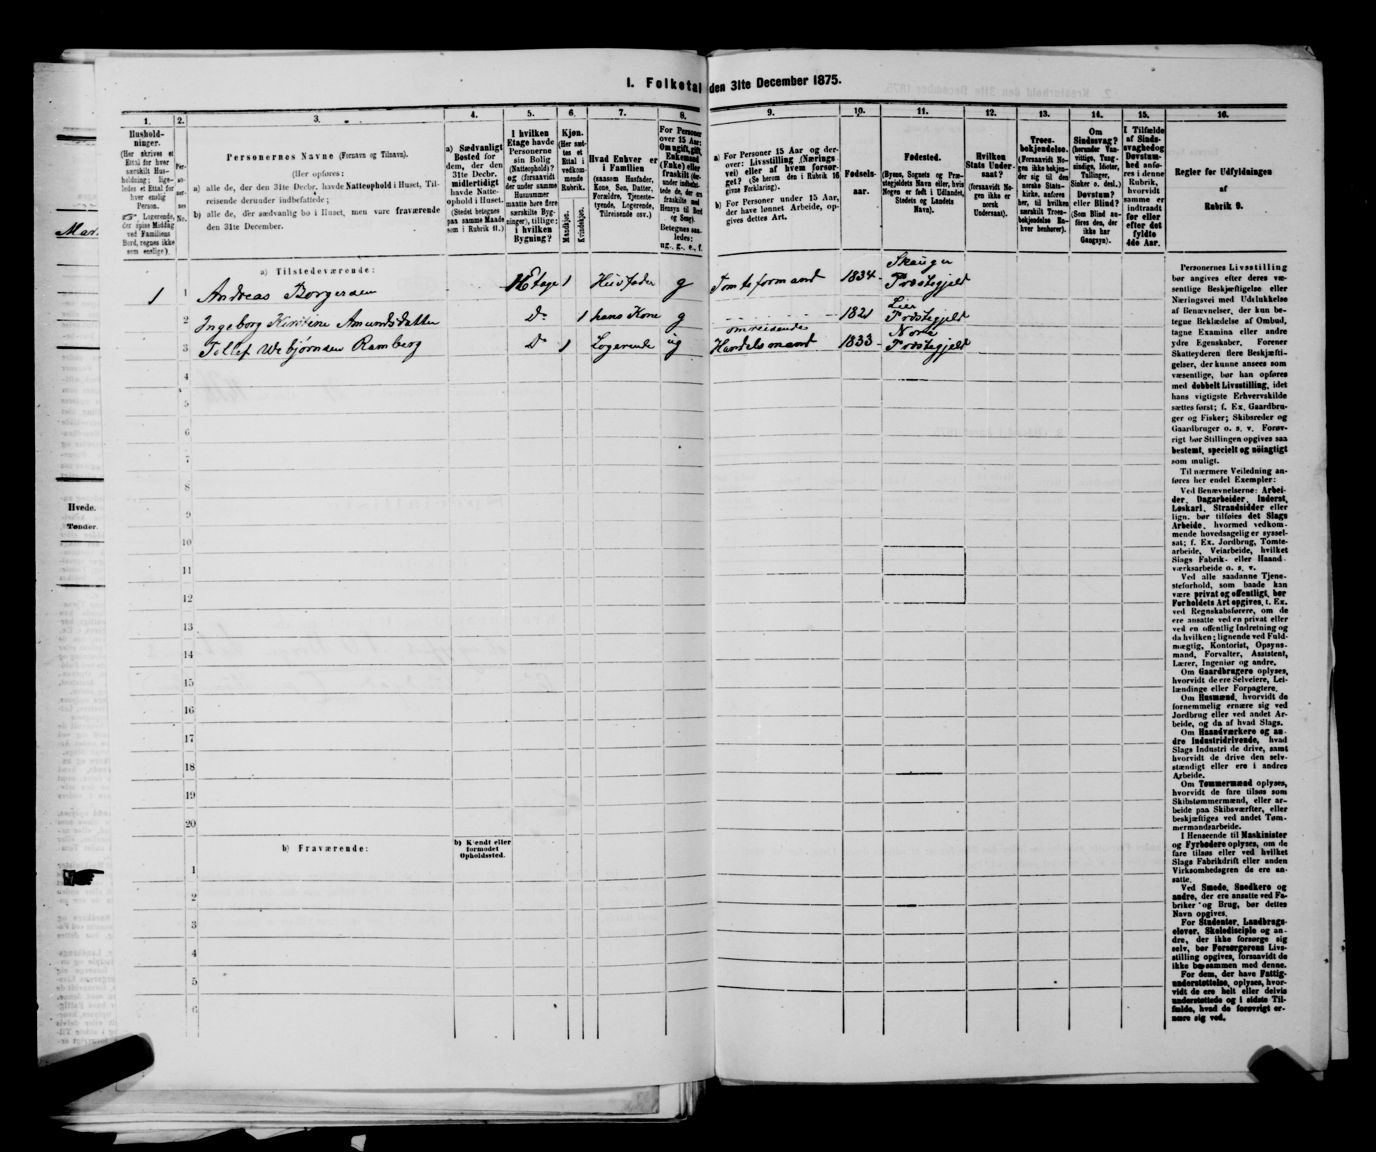 I. Folketal den 31te December 1875.
1.
2.
3.
4.
5.
6.
7.
8.
9.
10.
11.
12.
13.
14.
15.
16.
Hushold-
ninger.
(Her skrives et
Ettal for hver
særskilt Hus-
holdning; lige-
ledes et Ettal for
hver enslig
Person.
☞ Logerende,
der spise Middag
ved Familiens
Bord, regnes ikke
som enslige).
Per-
so-
ner-
nes
No.
Personernes Navne (Fornavn og Tilnavn).
(Her opføres:
a) alle de, der den 31te Decbr. havde Natteophold i Huset, Til-
reisende derunder indbefattede;
b) alle de, der sædvanlig bo i Huset, men vare fraværende
den 31te December.
a) Sædvanligt
Bosted for
dem, der den
31te Decbr.
midlertidigt
havde Natte-
ophold i Huset.
(Stedet betegnes
paa samme Maade
som i Rubrik 11.)
I hvilken
Etage havde
Personerne
sin Bolig
(Natteophold)?
og (forsaavidt
der under samme
Husnummer
maatte høre flere
særskilte Byg-
ninger), tillige:
i hvilken
Bygning?
Kjøn.
(Her sæt-
tes et
Ettal i
vedkom-
mende
Rubrik.
Mandkjøn.
Kvindekjøn.
Hvad Enhver er
i Familien
(saasom Husfader,
Kone, Søn, Datter,
Forældre, Tjeneste-
tyende, Logerende,
Tilreisende osv.)
For Personer
over 15 Aar:
Om ugift, gift,
Enkemand
(Enke) eller
fraskilt
Betegnes saa-
ledes:
ug., g., e., f.
a) For Personer 15 Aar og der-
over: Livsstilling (Nærings-
vei) eller af hvem forsør-
get? (Se herom den i Rubrik 16
givne Forklaring).
b) For Personer under 15 Aar,
der have lønnet Arbeide, op-
gives dettes Art.
Fødsels-
aar.
Fødested.
(Byens, Sognets og Præ-
stegjeldets Navn eller, hvis
Nogen er født i Udlandet,
Stedets og Landets
Navn).
Hvilken
Stats Under-
saat?
(forsaavidt No-
gen ikke er
norsk
Undersaat).
Troes-
bekjendelse.
(Forsaavidt No-
gen ikke bekjen-
der sig til den
norske Stats-
kirke, anføres
her, til hvilken
særskilt Troes-
bekjendelse En-
hver henhører).
Om
Sindssvag?
(herunder Van-
vittige, Tung-
sindige, Idioter,
Tullinger,
Sinker o. desl.)
Døvstum?
eller Blind?
(Som Blind an-
føres den, der
ikke har
Gangsyn).
I Tilfælde
af Sinds-
svaghed og
Døvstum-
hed anfø-
res i denne
Rubrik,
hvorvidt
samme er
indtraadt
før eller
efter det
fyldte
4de Aar.
Regler for Udfyldningen
af
Rubrik 9.
a) Tilstedeværende:
1
1 Andreas Borgersen
1 Etage 1 Husfader g Tomteformand 1834 Skauger
Præstegjeld
2 Ingeborg Kirstine Amundsdatter
Do 1 hans Kone g 1821 Lier
Præstegjeld
3 Tollef Webjørnsen Ramberg
Do 1 Logerende ug omreisende
Handelsmand 1833 Nore
Præstegjeld
4
5
6
7
8
9
10
11
12
13
14
15
16
17
18
19
20
b) Fraværende:
b) Kjendt eller
formodet
Opholdssted.
1
2
3
4
5
6
Hvede.
Tønder.
Personernes Livsstilling
bør angives efter deres væ-
sentlige Beskjæftigelse eller
Næringsvei med Udelukkelse
af Benævnelser, der kun be-
tegne Beklædelse af Ombud,
tagne Examina eller andre
ydre Egenskaber. Forener
Skatteyderen flere Beskjæfti-
gelser, der kunne ansees som
væsentlige, bør han opføres
med dobbelt Livsstilling, idet
hans vigtigste Erhvervskilde
sættes først; f. Ex. Gaardbru-
ger og Fisker; Skibsreder og
Gaardbruger o. s. v. Forøv-
rigt bør Stillingen opgives saa
bestemt, specielt og nöiagtigt
som muligt.
Til nærmere Veiledning an-
føres her endel Exempler:
Ved Benævnelserne: Arbei-
der, Dagarbeider, Inderst,
Løskarl, Strandsidder eller
lign. bør tilføies det Slags
Arbeide, hvormed vedkom-
mende hovedsagelig er syssel-
sat; f. Ex. Jordbrug, Tomte-
arbeide, Veiarbeide, hvilket
Slags Fabrik- eller Haand-
værksarbeide o. s. v.
Ved alle saadanne Tjene-
steforhold, som baade kan
være privat og offentligt, bør
Forholdets Art opgives, t. Ex.
ved Regnskabsførere, om de
ere ansatte ved en privat eller
ved en offentlig Indretning og
da hvilken; lignende ved Fuld-
mægtig, Kontorist, Opsyns-
mand, Forvalter, Assistent,
Lærer, Ingeniør og andre.
Om Gaardbrugere oplyses,
hvorvidt de ere Selveiere, Lei-
lændinge eller Forpagtere.
Om Husmænd, hvorvidt de
fornemmelig ernære sig ved
Jordbrug eller ved andet Ar-
beide, og da af hvad Slags.
Om Haandværkere og an-
dre Industridrivende, hvad
Slags Industri de drive, samt
hvorvidt de drive den selv-
stændigt eller ere i andres
Arbeide.
Om Tømmermænd oplyses,
hvorvidt de fare tilsøs som
Skibstømmermænd, eller ar-
beide paa Skibsværfter, eller
beskjæftiges ved andet Tøm-
mermandsarbeide.
I Henseende til Maskinister
og Fyrbødere oplyses, om de
fare tilsøs eller ved hvilket
Slags Fabrikdrift eller anden
Virksomhedsgren de ere an-
satte.
Ved Smede, Snedkere og
andre, der ere ansatte ved Fa-
briker og Brug, bør dettes
Navn opgives.
For Studenter, Landbrugs-
elever, Skoledisciple og an-
dre, der ikke forsørge sig
selv, bør Forsørgerens Livs-
stilling opgives, forsaavidt de
ikke bo sammen med denne.
For dem, der have Fattig-
understøttelse, oplyses, hvor-
vidt de ere helt eller delvis
understøttede og i sidste Til-
fælde, hvad de forøvrigt er-
nære sig ved.